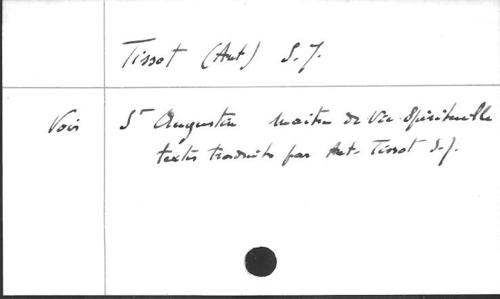 Tissot (Ant) S.J.
Voir St Augustin maître de vie spirituelle
textes traduits par Ant. Tissot S.J.